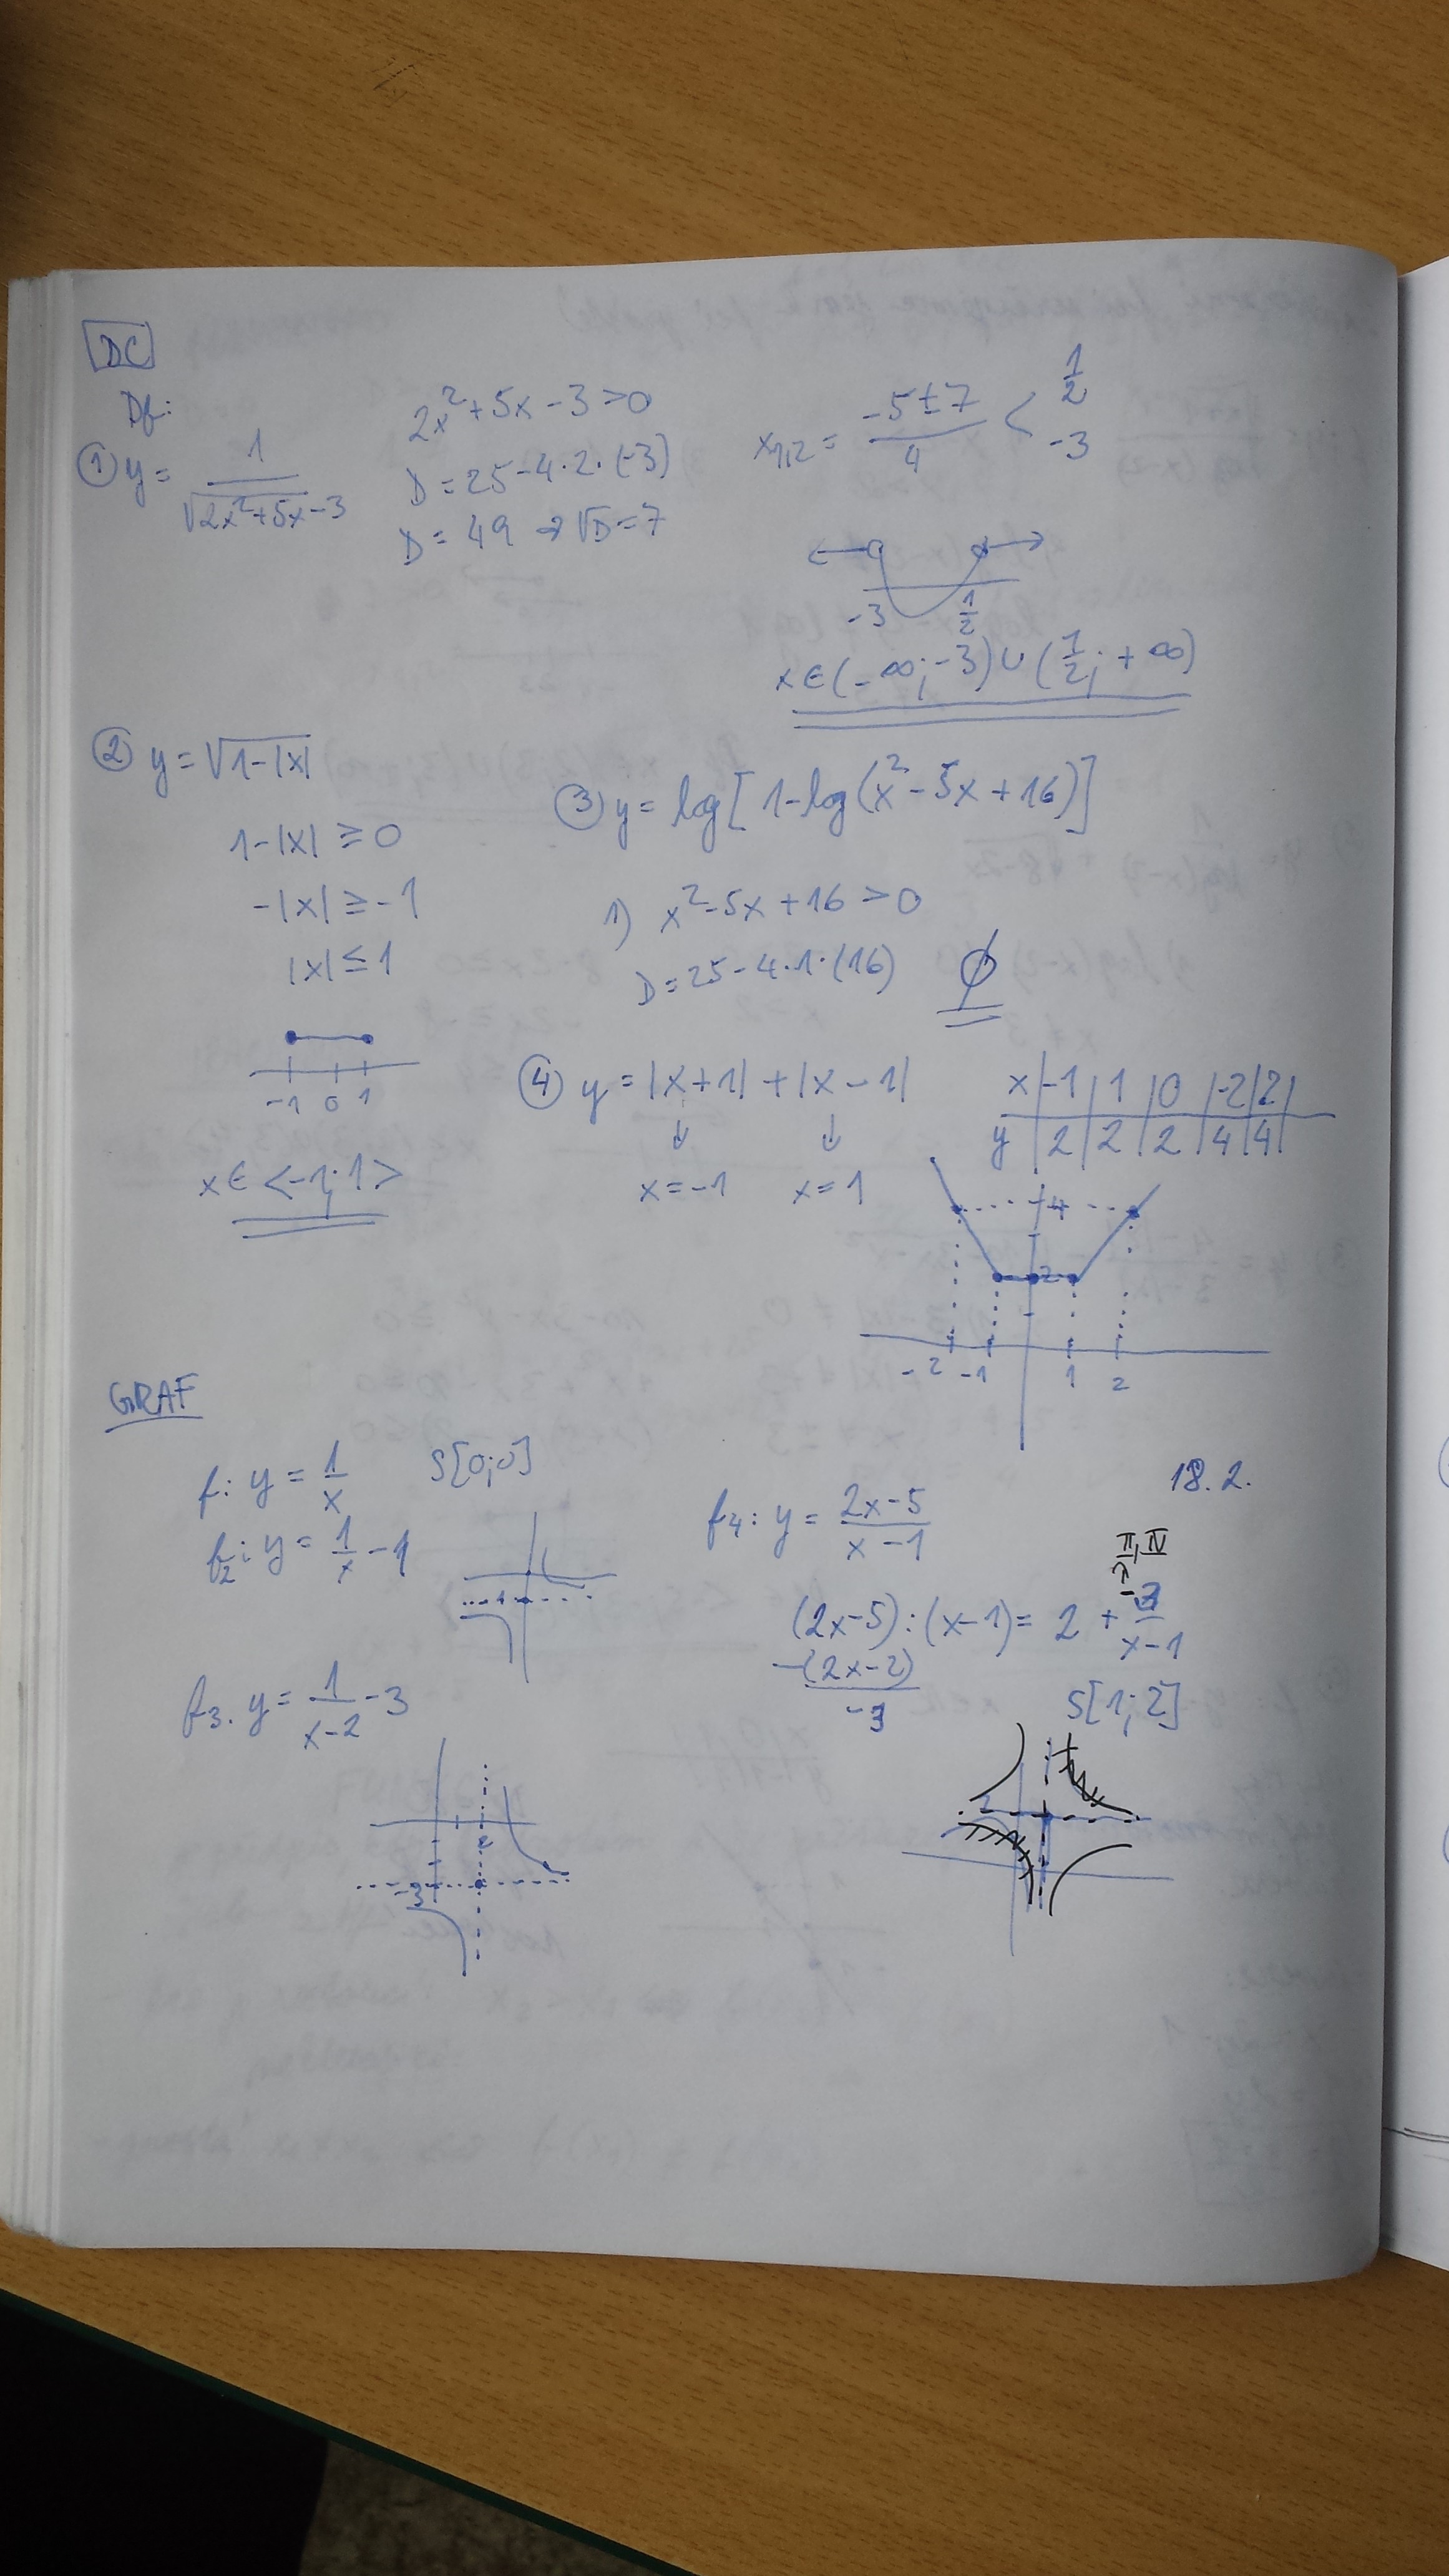 DC
Df:
① y = 1/√(2x²+5x-3)
2x²+5x-3>0
D=25-4·2·(-3)
D=49 ⇒ √D=7
x₁,₂ = (-5±7)/4 < 1/2
-3
-3 1/2
x∈(-∞;-3)∪(1/2;+∞)
② y=√(1-|x|)
1-|x| ≥ 0
-|x| ≥ -1
|x| ≤ 1
-1 0 1
x∈<-1;1>
③ y = log[1-log(x²-5x+16)]
1) x²-5x+16>0
D=25-4·1·(16) ∅
④ y=|x+1|+|x-1|
↓ ↓
x=-1 x=1
x | -1 | 1 | 0 | -2 | 2 |
y | 2 | 2 | 2 | 4 | 4 |
4
2
-2 -1 1 2
GRAF
f: y = 1/x S[0;0]
f₂: y = 1/x - 1
-1
f₃. y = 1/(x-2) - 3
2
-3
18.2.
f₄: y = (2x-5)/(x-1)
II, IV
(2x-5):(x-1)= 2 + -3/(x-1)
-(2x-2)
-3
S[1;2]
2